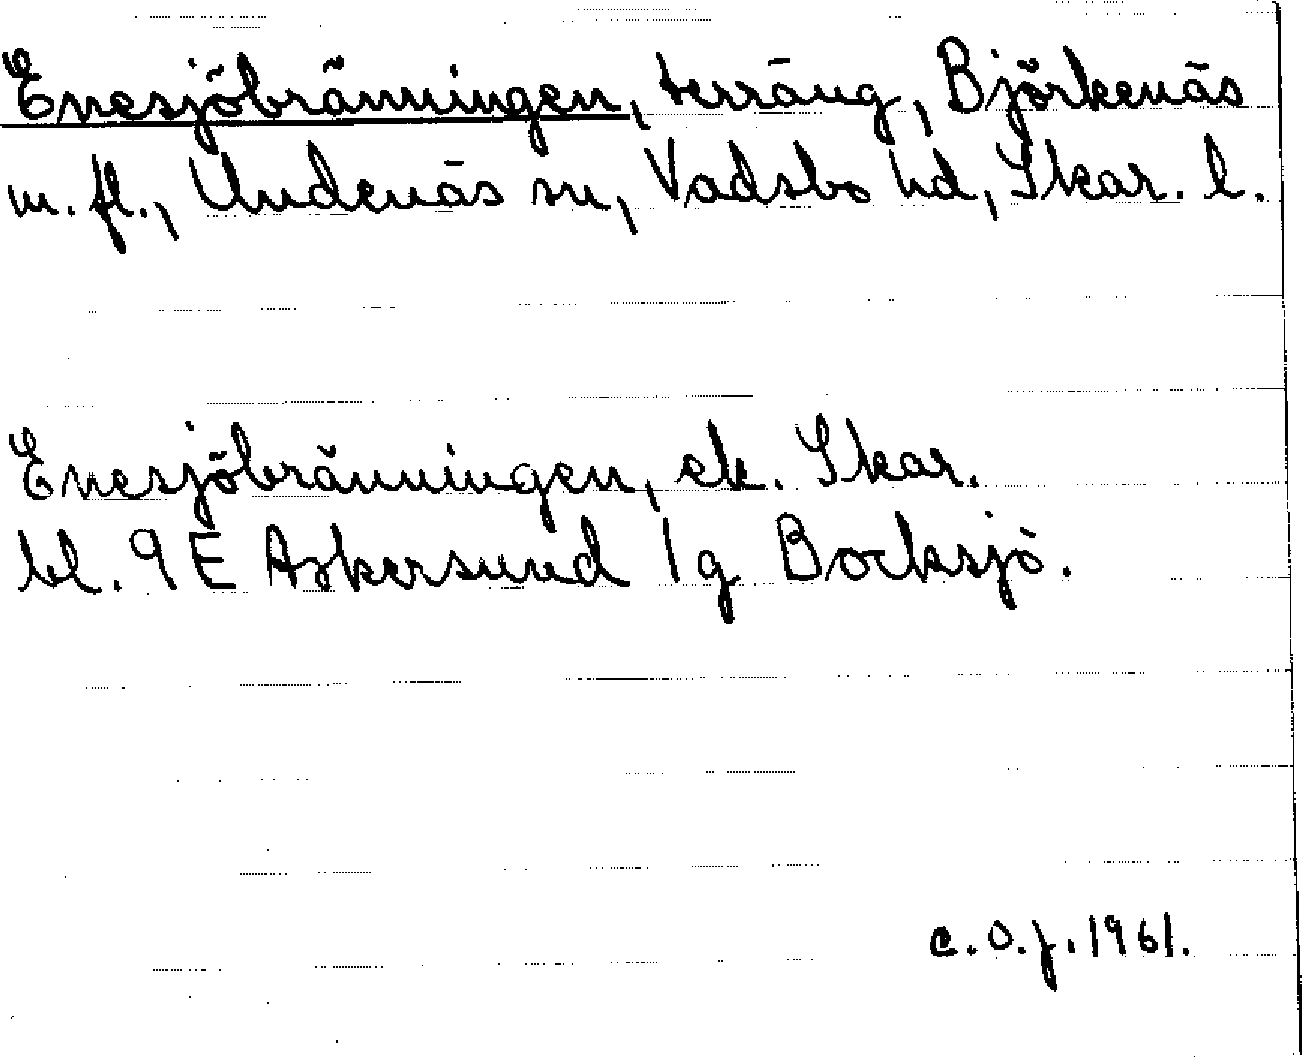 Enesjöbränningen, terräng, Björkenäs
m.fl., Undenäs sn, Vadsbo hd, Skar. l.
Enesjöbränningen, ek. Skar.
bl. 9E Askersund 1g Bocksjö.
C.O.J. 1961.